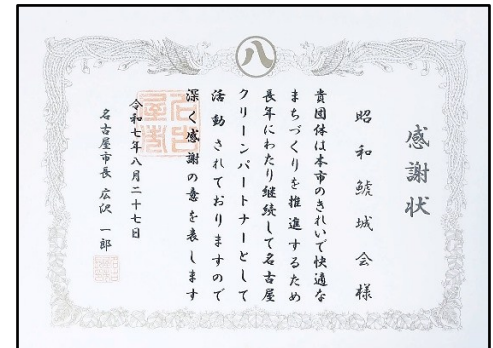 八
感謝状
昭和鯱城会様
貴団体は本市のきれいで快適な
まちづくりを推進するため
長年にわたり継続して名古屋
クリーンパートナーとして
活動されておりますので
深く感謝の意を表します
令和七年八月二十七日
名古屋市長 広沢一郎
名古屋市